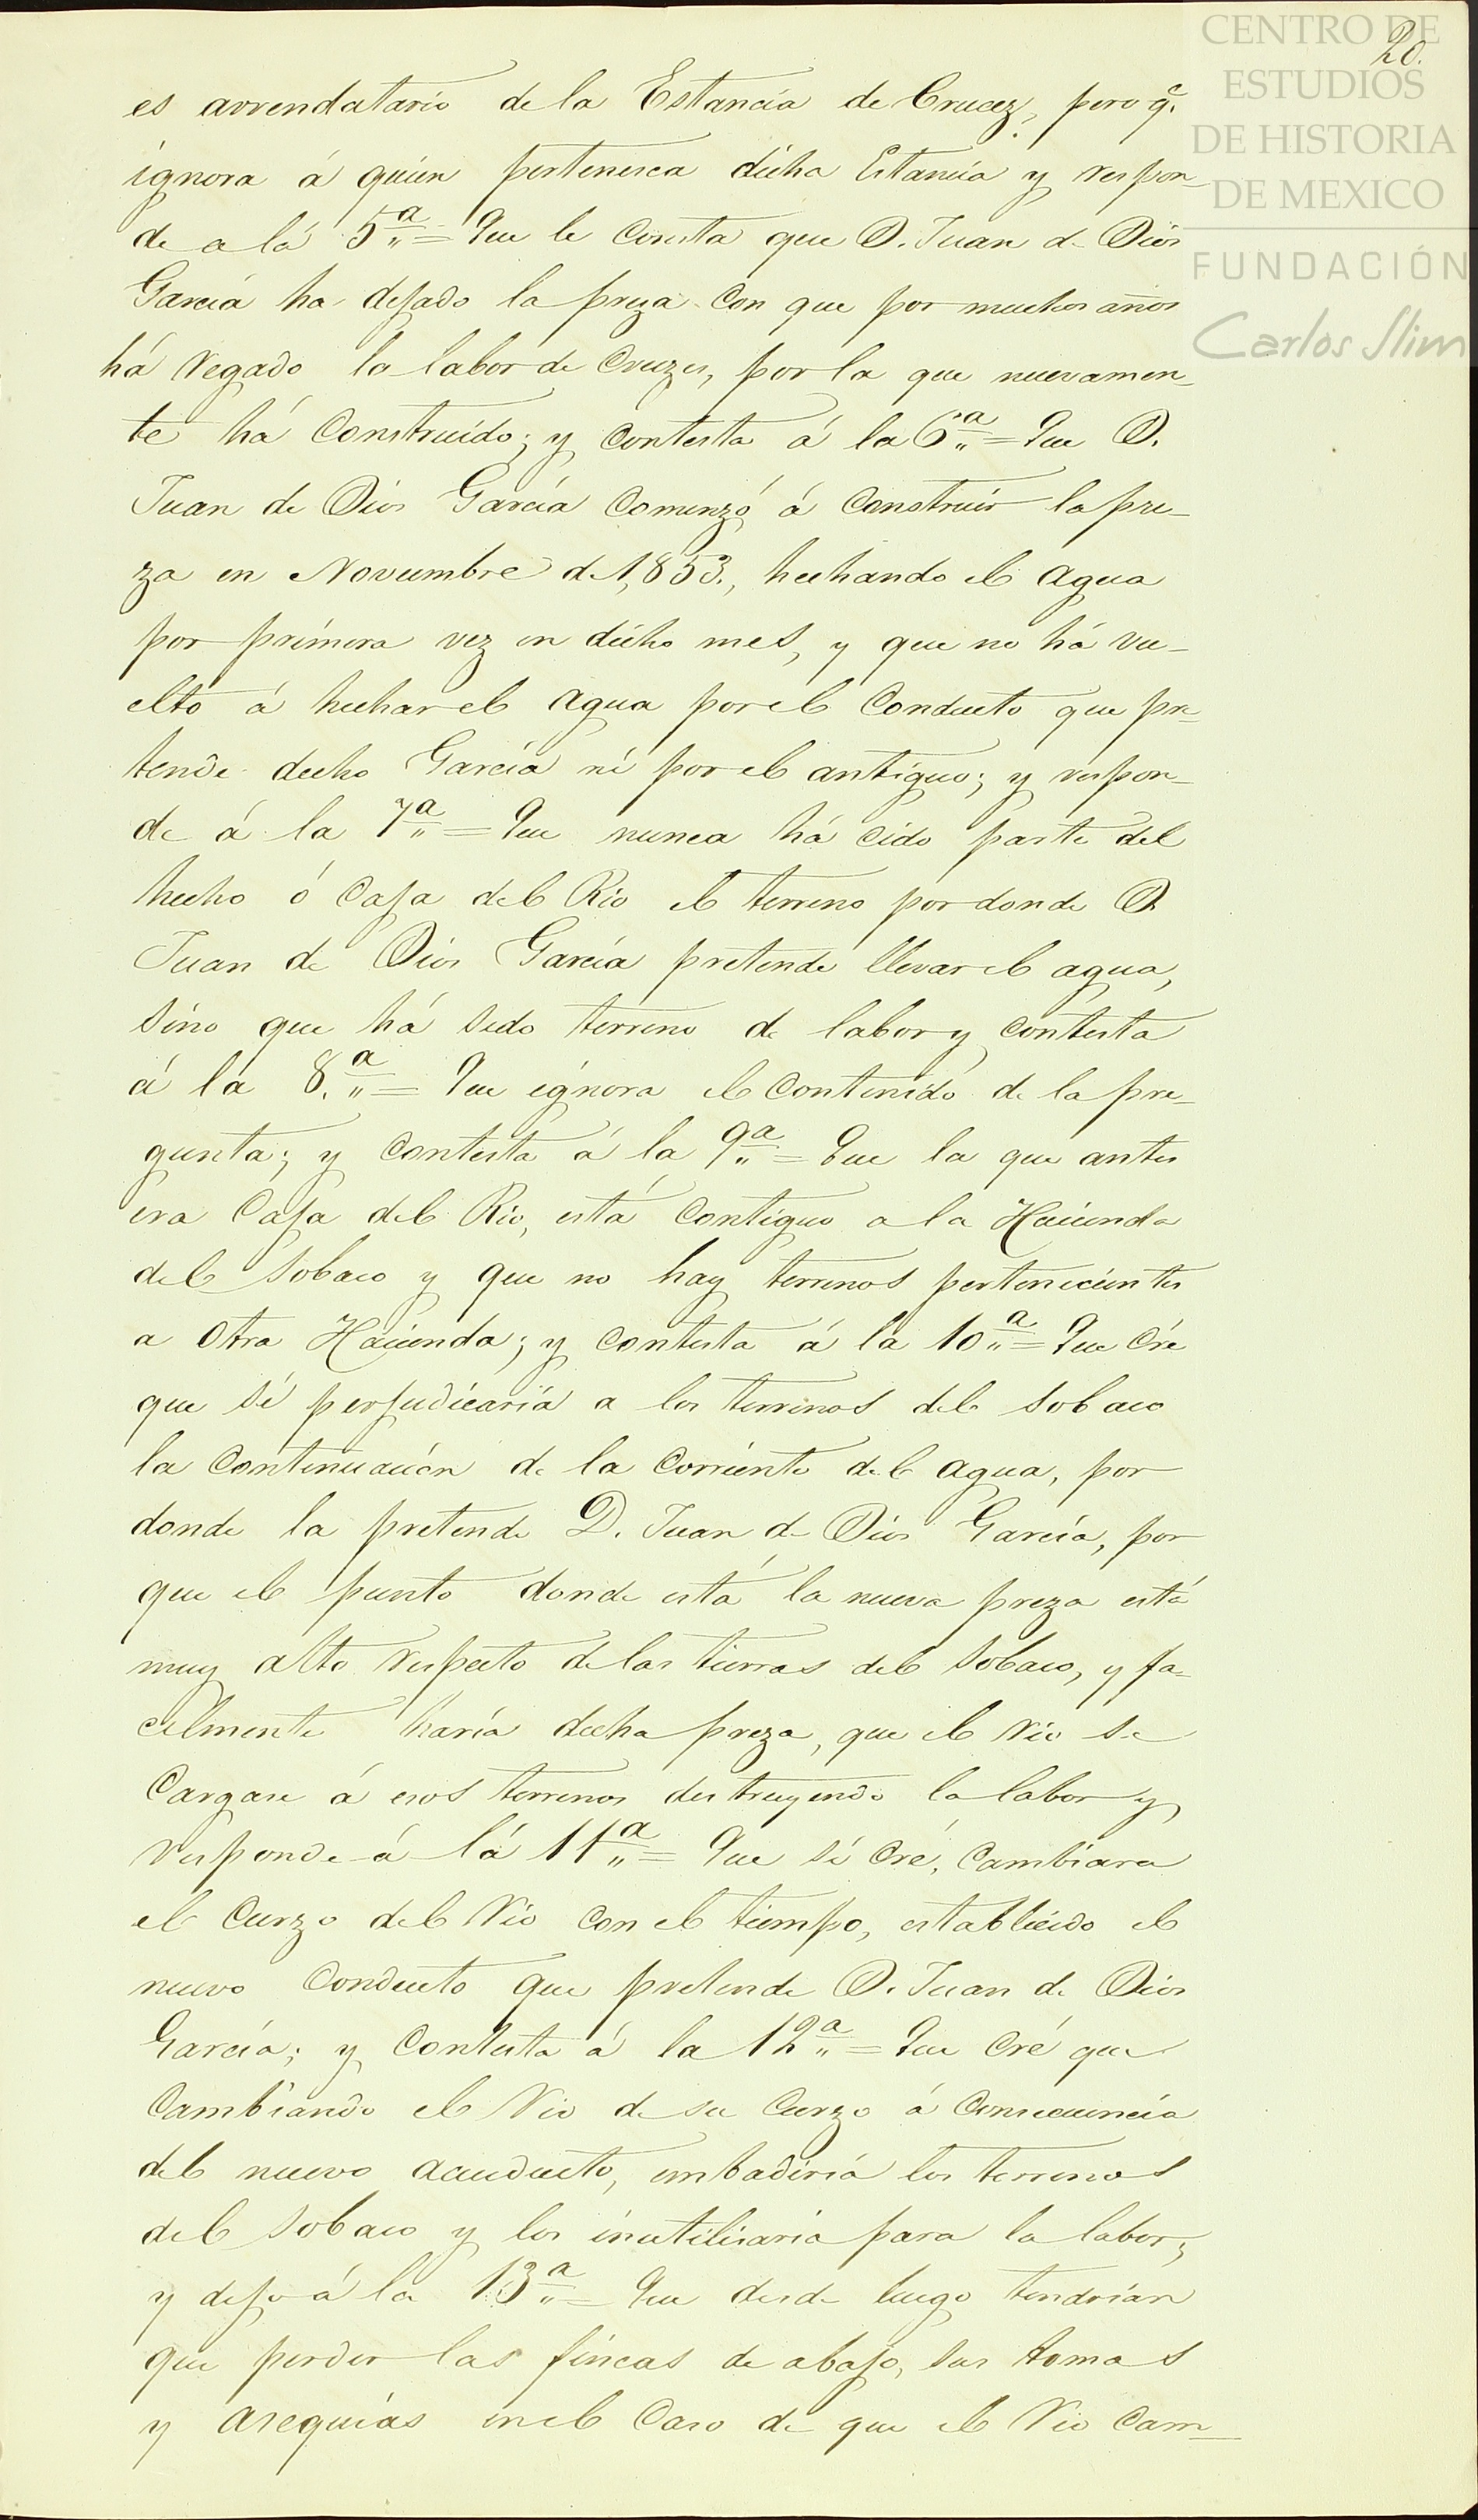 CENTRO DE
ESTUDIOS
DE HISTORIA
DE MEXICO
FUNDACIÓN
Carlos Slim
20.
es arrendatario de la Estancia de Crucez, pero q.e
ignora á quien pertenesca dicha Estancia y respon-
de a la 5.a = Que le consta que D. Juan de Dios
García ha dejado la preza con que por muchos años
há regado la labor de Cruzes, por la que nuevamen-
te há construido; y contesta á la 6.a = Que D.
Juan de Dios García comenzó á construir la pre-
za en Noviembre de 1,853., hechando el agua
por primera vez en dicho mes, y que no há vu-
elto á hechar el agua por el conducto que pre-
tende dicho García ni por el antiguo; y respon-
de á la 7.a = Que nunca há cido parte del
hecho ó Caja del Rio el terreno por donde D.
Juan de Dios García pretende llevar el agua,
sino que há sido terreno de labor y contesta
á la 8.a = Que ignora el contenido de la pre-
gunta; y contesta á la 9.a = Que la que antes
era Caja del Rio, está contiguo a la Hacienda
del Sobaco y que no hay terrenos pertenecientes
a otra Hacienda; y contesta á la 10.a = Que cré
que sí perjudicaría a los terrenos del Sobaco
la continuación de la corriente del agua, por
donde la pretende D. Juan de Dios García, por
que el punto donde está la nueva preza está
muy alto respecto de las tierras del Sobaco, y fa-
cilmente haría dicha preza, que el rio se
cargase á esos terrenos destruyendo la labor y
responde á lá 11.a = Que sí cré, cambiara
el curzo del rio con el tiempo, establecido el
nuevo conducto que pretende D. Juan de Dios
García; y contesta á la 12.a = Que cré que
cambiando el rio de su curzo á consecuencia
del nuevo acueducto, imbadiría los terrenos
del Sobaco y los inutilisaría para la labor;
y dijo á la 13.a = Que desde luego tendrían
que perder las fincas de abajo, sus tomas
y asequías en el caso de que el rio cam-